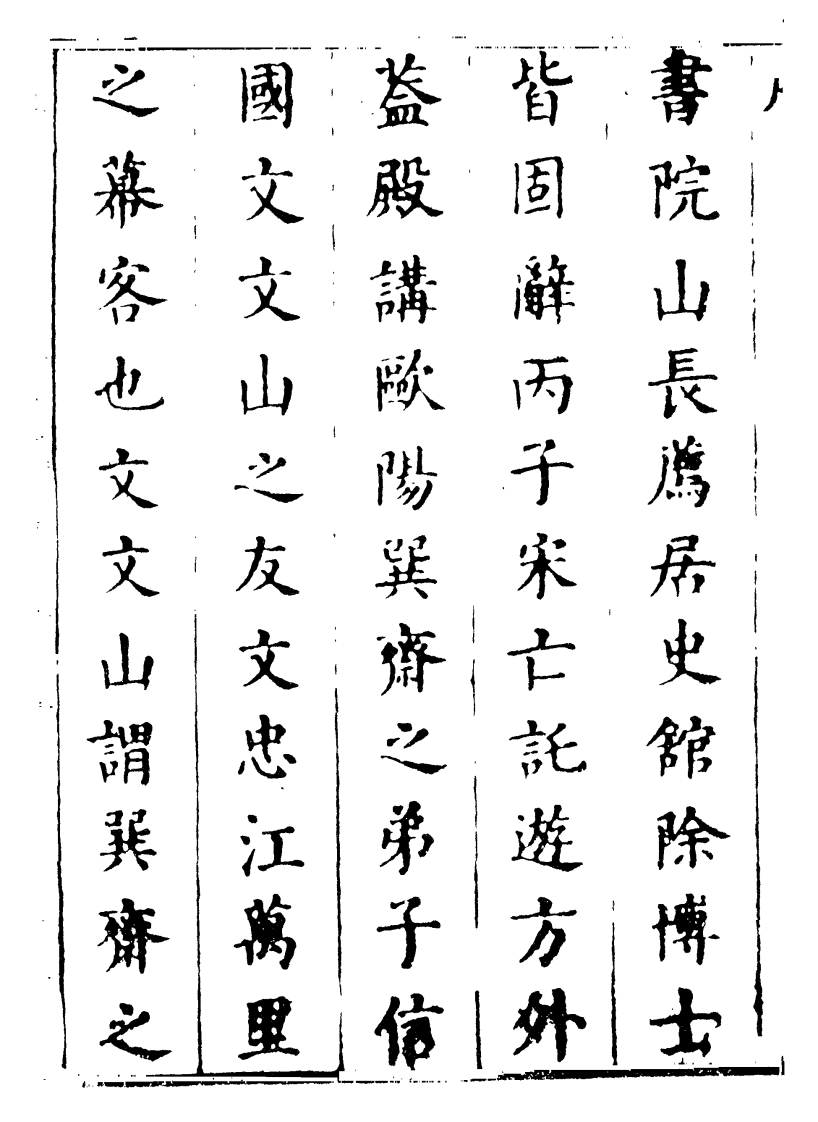 書院山長薦居史館除博士
皆固辭丙子宋亡託遊方外
葢殿講歐陽巽齋之弟子信
國文文山之友文忠江萬里
之幕客也文文山謂巽齋之